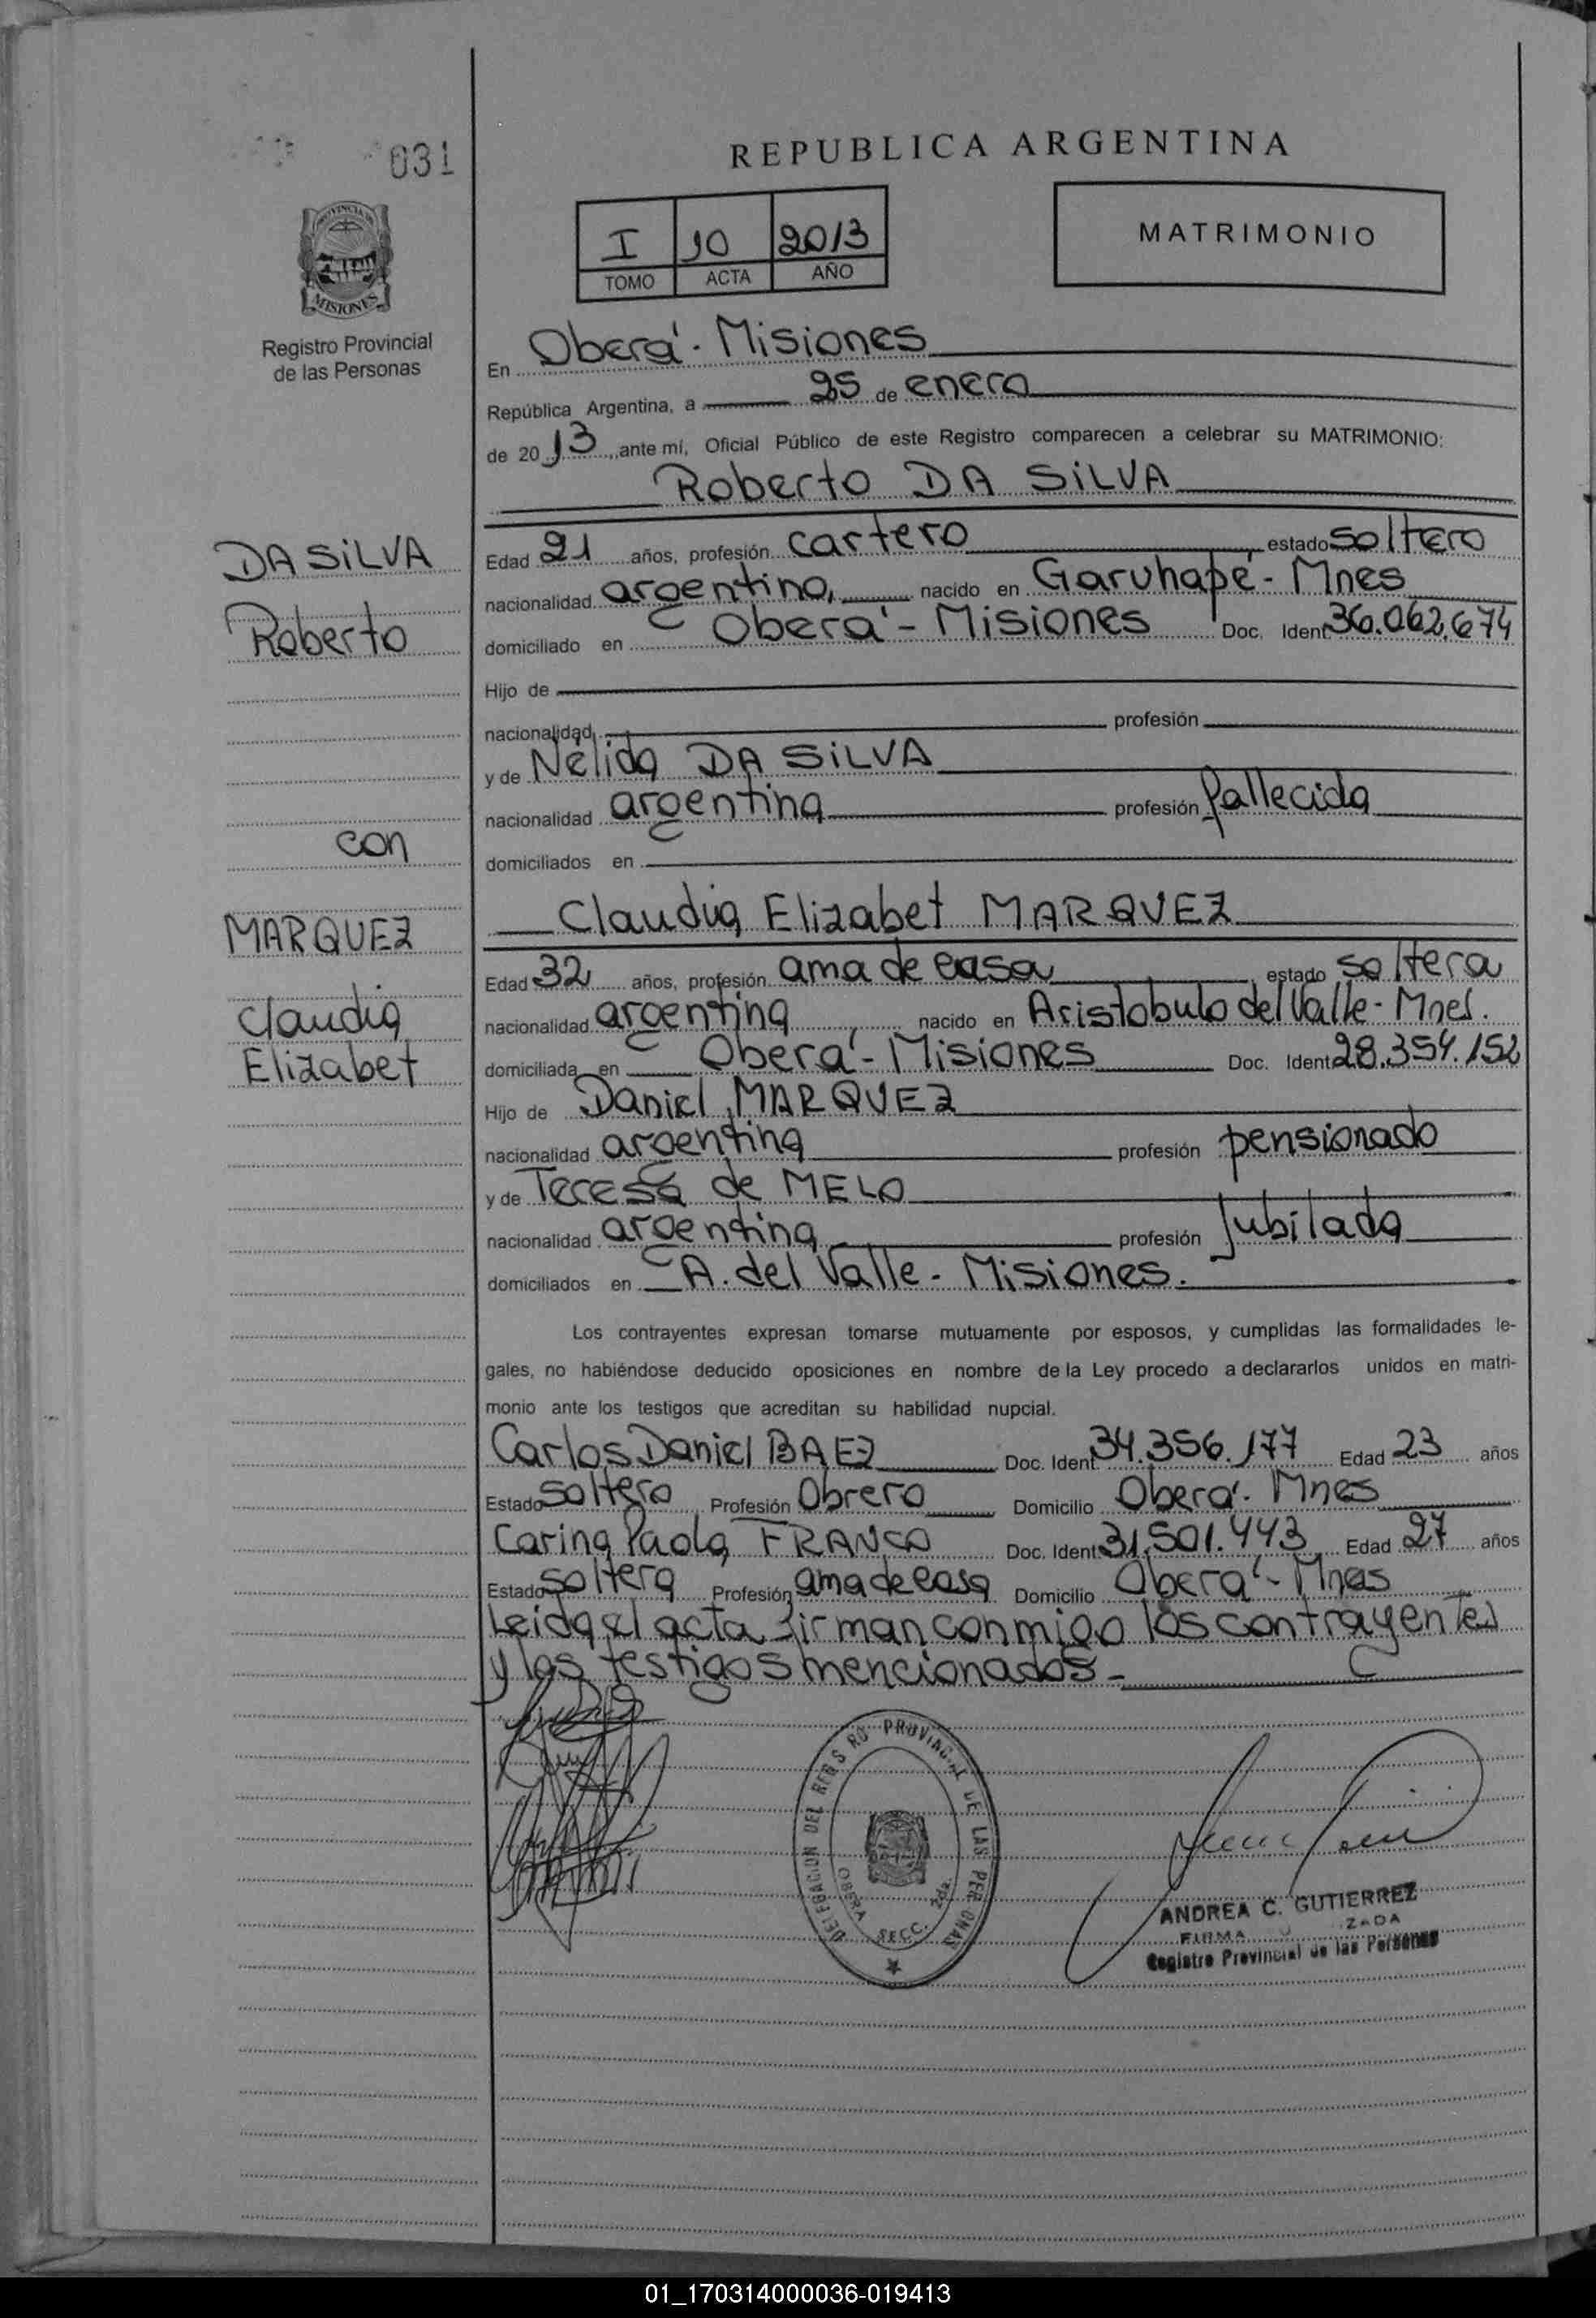 031
REPUBLICA ARGENTINA
I 10 2013
TOMO ACTA AÑO
MATRIMONIO
PROVINCIA DE
MISIONES
Registro Provincial
de las Personas
En Oberá - Misiones
República Argentina, a 25 de enero
de 2013, ante mí, Oficial Público de este Registro comparecen a celebrar su MATRIMONIO:
Roberto DA SiLVA
DA SiLVA
Roberto
con
MARQUEZ
Claudia
Elizabet
Edad 21 años, profesión cartero estado soltero
nacionalidad argentino, nacido en Garuhapé - Mnes
domiciliado en Oberá - Misiones Doc. Ident 36.062.674
Hijo de
nacionalidad profesión
y de Nélida DA SiLVA
nacionalidad argentina profesión fallecida
domiciliados en
Claudia Elizabet MARQUEZ
Edad 32 años, profesión ama de casa estado soltera
nacionalidad argentina nacido en Aristobulo del Valle - Mnes.
domiciliada en Oberá - Misiones Doc. Ident 28.354.152
Hijo de Daniel MARQUEZ
nacionalidad argentina profesión pensionado
y de Teresa de MELO
nacionalidad argentina profesión Jubilada
domiciliados en A. del Valle - Misiones.
Los contrayentes expresan tomarse mutuamente por esposos, y cumplidas las formalidades le-
gales, no habiéndose deducido oposiciones en nombre de la Ley procedo a declararlos unidos en matri-
monio ante los testigos que acreditan su habilidad nupcial.
Carlos Daniel BAEZ Doc. Ident 34.356.177 Edad 23 años
Estado soltero Profesión Obrero Domicilio Oberá - Mnes
Carina Paola FRANCO Doc. Ident 31.501.443 Edad 27 años
Estado soltera Profesión ama de casa Domicilio Oberá - Mnes
Leida el acta firman conmigo los contrayentes
y los testigos mencionados -
DELEGACION DEL REGISRO PROVINCIAL DE LAS PERSONAS
OBERA SECC. 2da.
ANDREA C. GUTIERREZ
FIRMA
Registro Provincial de las Personas
01_170314000036-019413